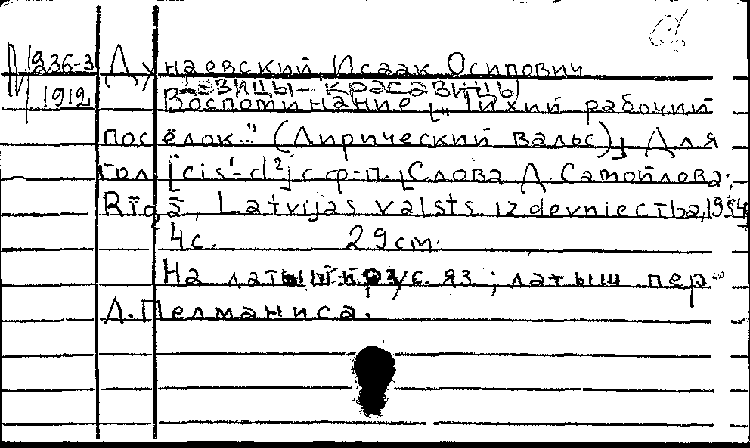 М 236-3 Дунаевский Исаак Осипович
девицы-красавицы
1912 Воспоминание ["Тихий рабочий
посёлок..." (Лирический вальс)] Для
гол. [cis¹-d²] с ф-п. [Слова Д. Самойлова.
Rīgā, Latvijas valsts izdevniecība, 1954
4 с. 29 cm.
На латыш. и рус. яз; латыш пер-
Л. Пелманиса.